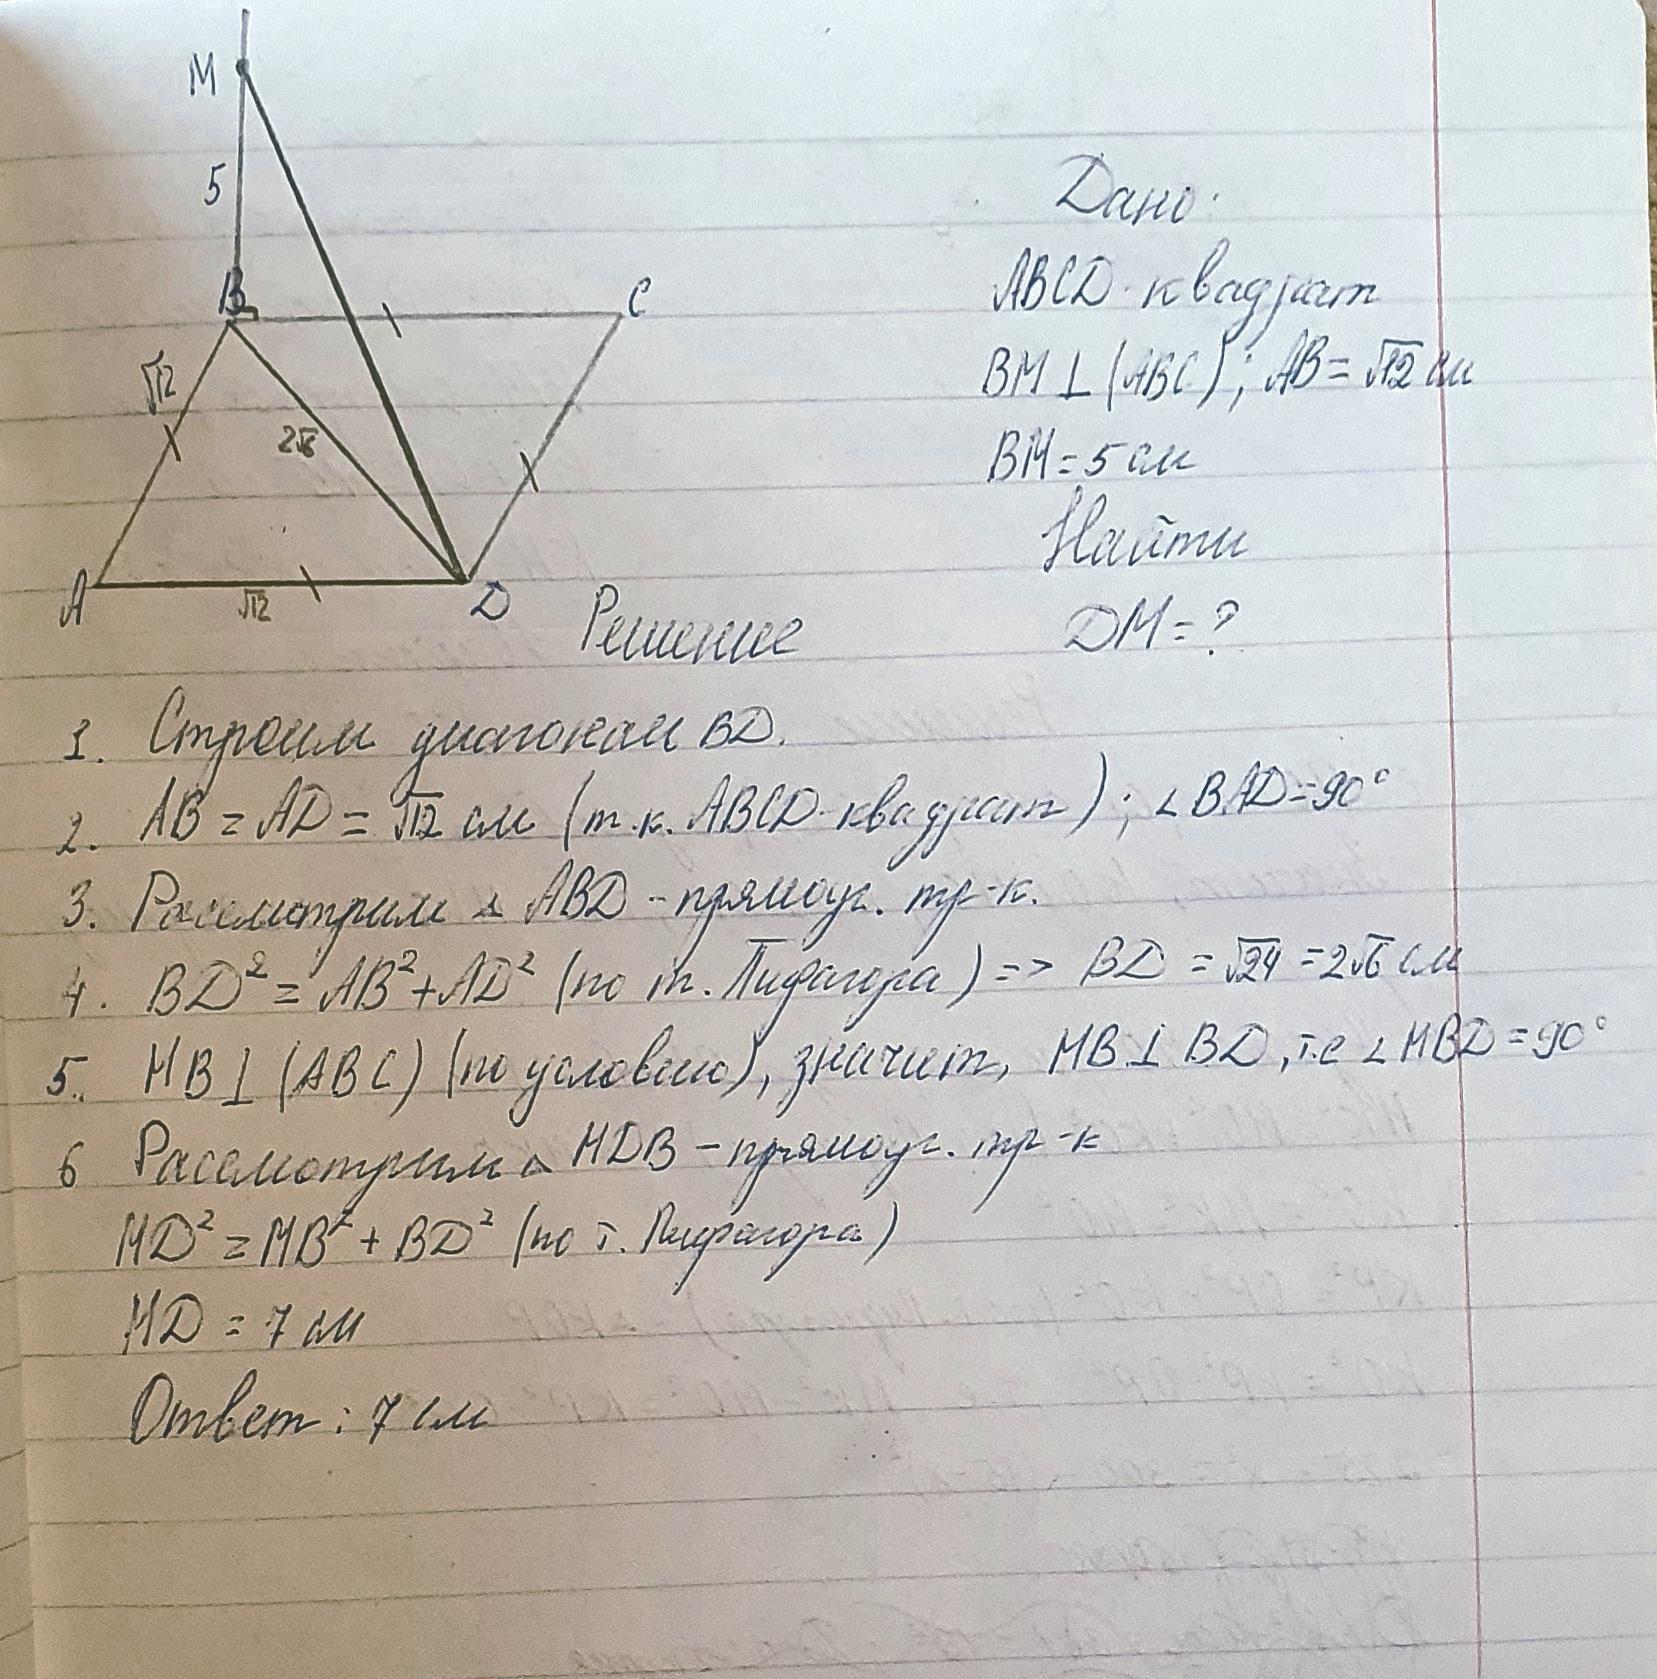 M
5
B
C
√12
2√6
A
√12
D
Дано:
ABCD - квадрат
BM ⊥ (ABC); AB = √12 см
BM = 5 см
Найти
DM = ?
Решение
1. Строим диагонали BD.
2. AB = AD = √12 см (т.к. ABCD - квадрат); ∠BAD = 90°
3. Рассмотрим △ ABD - прямоуг. тр-к.
4. BD² = AB² + AD² (по т. Пифагора) => BD = √24 = 2√6 см
5. MB ⊥ (ABC) (по условию), значит, MB ⊥ BD, т.е ∠MBD = 90°
6 Рассмотрим △ MDB - прямоуг. тр-к
MD² = MB² + BD² (по т. Пифагора)
MD = 7 см
Ответ: 7 см